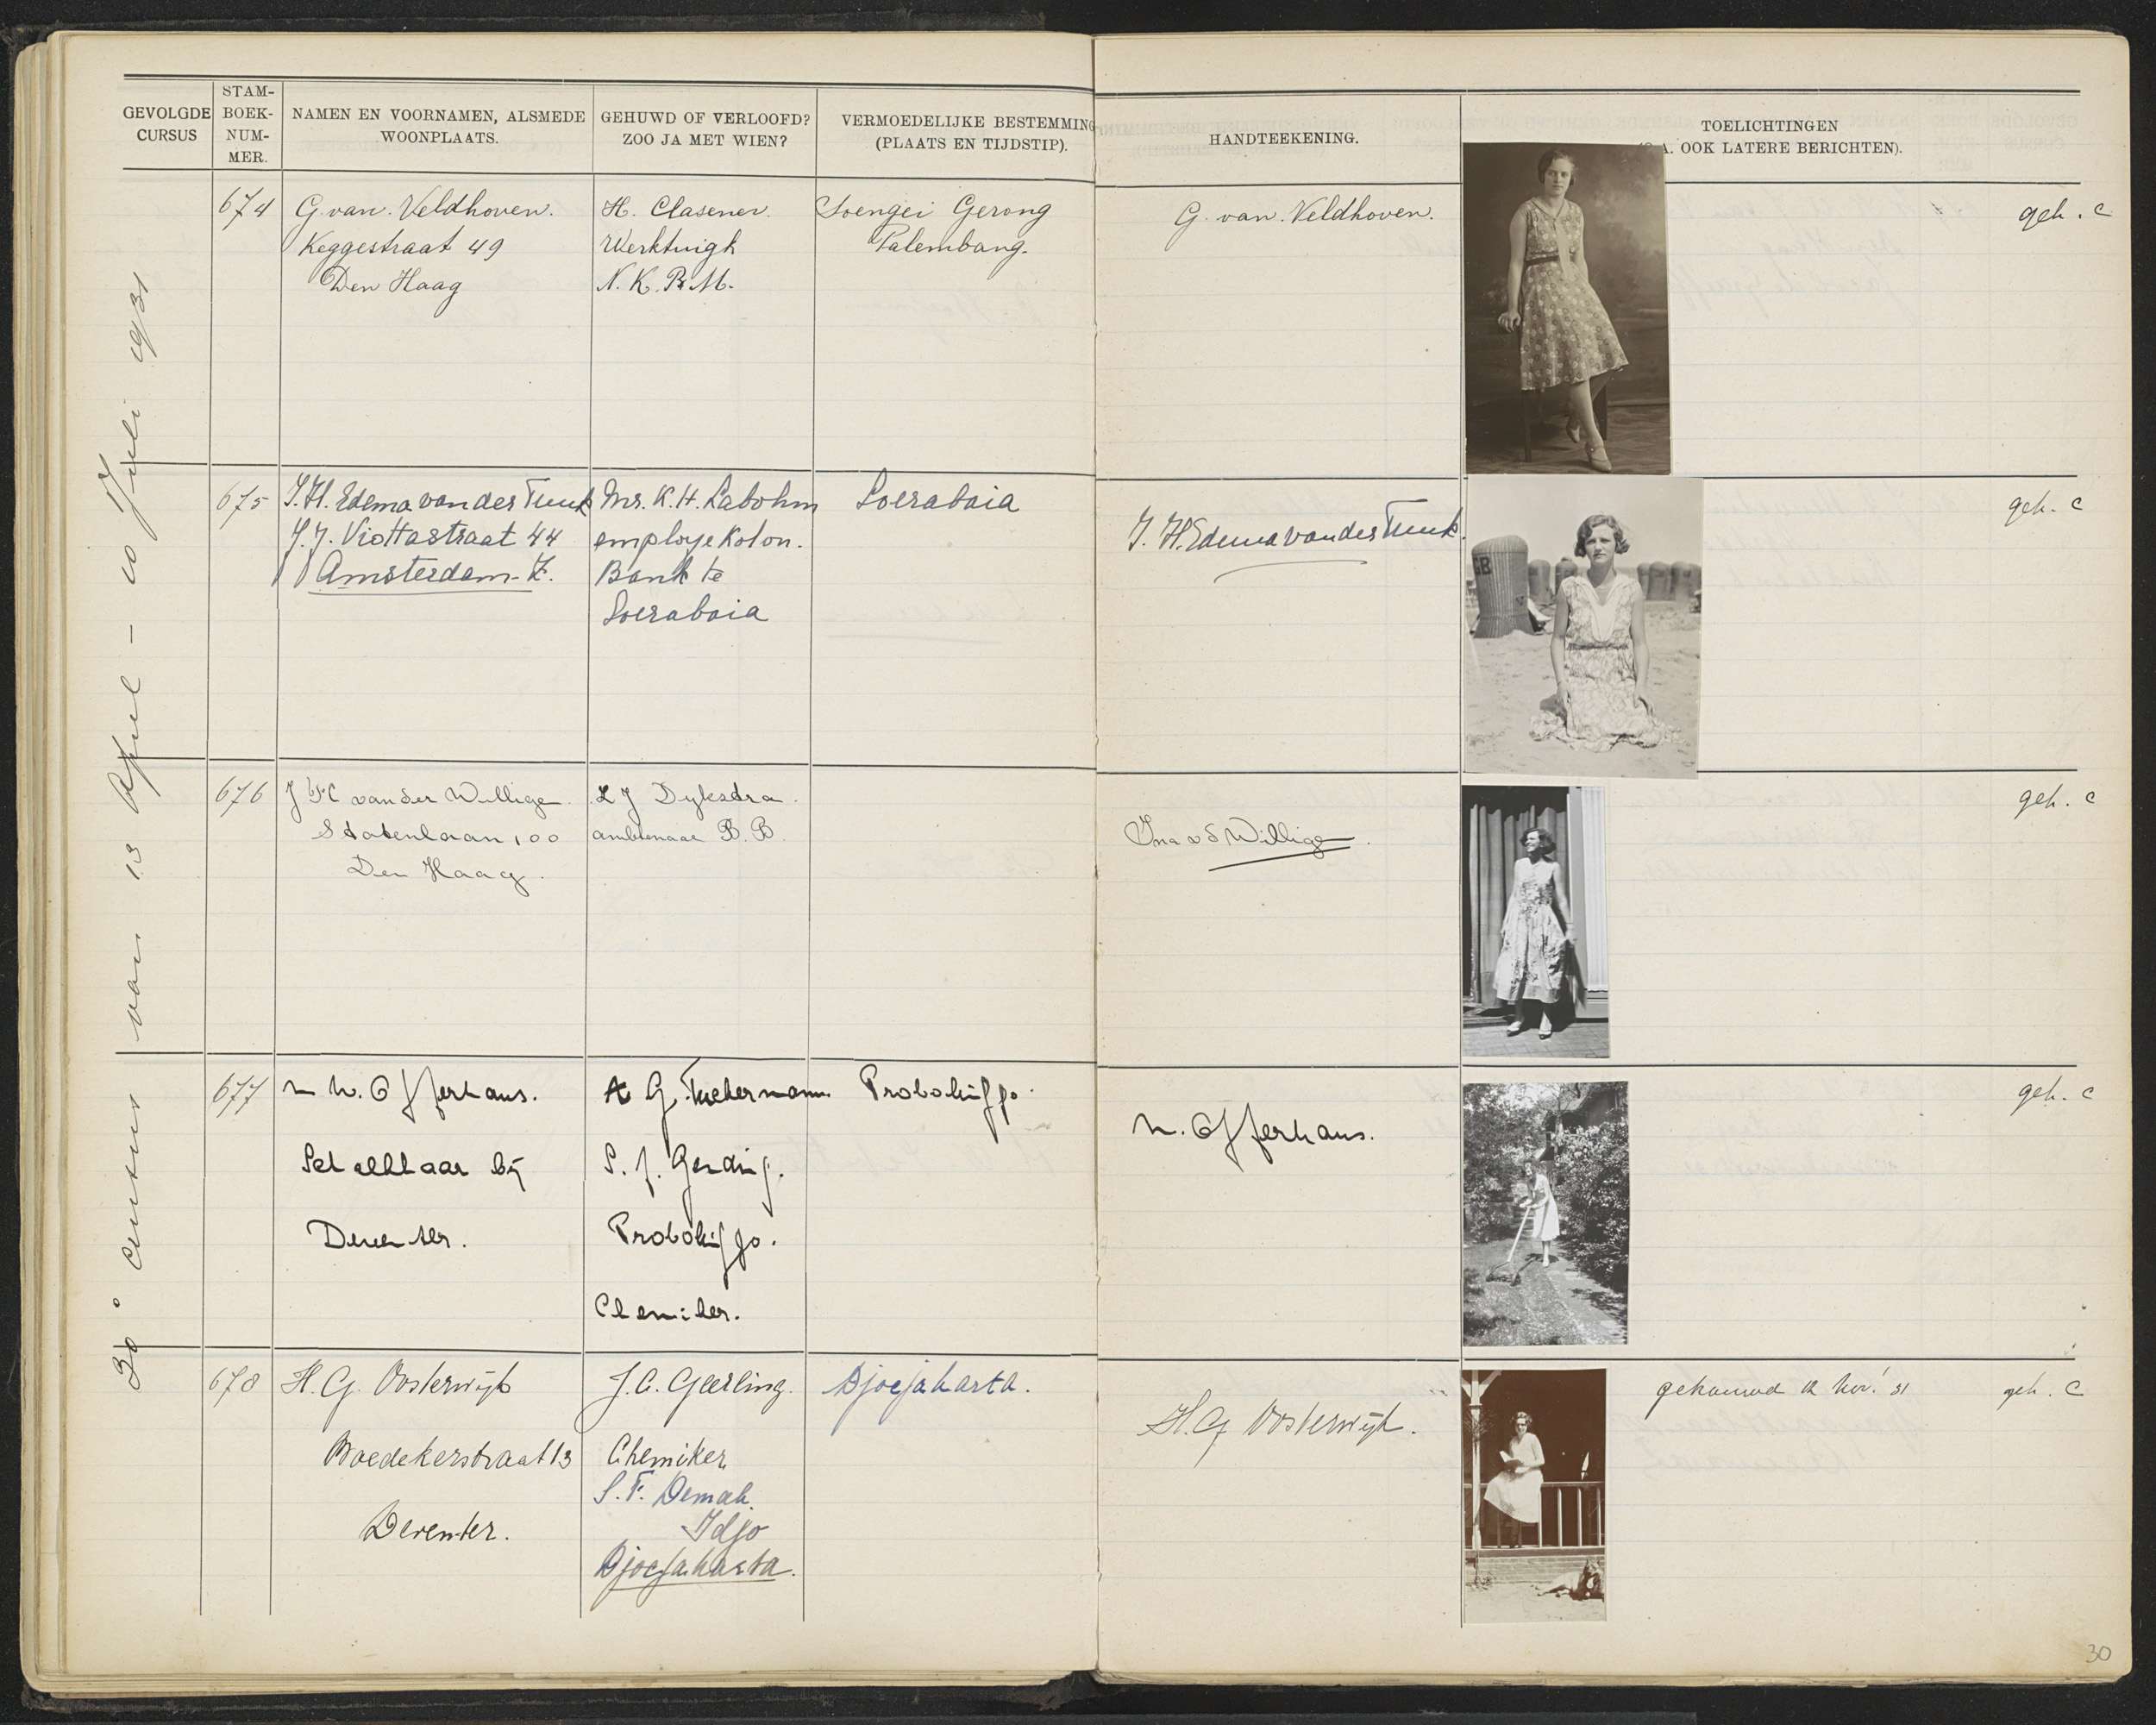 GEVOLGDE CURSUS
STAM-BOEK-NUM-MER.
NAMEN EN VOORNAMEN, ALSMEDE WOONPLAATS.
GEHUWD OF VERLOOFD? ZOO JA MET WIEN?
VERMOEDELIJKE BESTEMMING (PLAATS EN TIJDSTIP).
HANDTEEKENING.
TOELICHTINGEN
A. OOK LATERE BERICHTEN).
30e cursus van 13 April - 10 Juli 1931
674
G. van Veldhoven.
Keggestraat 49
Den Haag
H. Clasener.
Werktuigk
N.K.P.M.
Soengei Gerong
Palembang.
G. van Veldhoven.
geh. c
675
J.H. Edema van der Tuuk
J.J. Viottastraat 44
Amsterdam-Z.
Mr. K.H. Labohm
employe Kolon.
Bank te
Soerabaia
Soerabaia
J. H. Edema van der Tuuk.
GB
geh. c
676
van der Willige.
Statenlaan 100
Den Haag.
L J Dijkstra.
ambtenaar B.B.
Ina v d Willige.
geh. c
677
W. Offerhaus.
Schalkhaar bij
Deventer.
A G.
S. f. Gending.
Probolinggo.
Chemiker.
Probolinggo.
Offerhaus.
geh. c
678
H.G. Oosterwijk
Boedekerstraat 13
Deventer.
J.C. Geerling.
Chemiker
S.F. Demak
Idjo
Djocjakarta.
Djocjakarta.
H.G Oosterwijk.
gehuwd 12 Nov. '31
geh. c
30